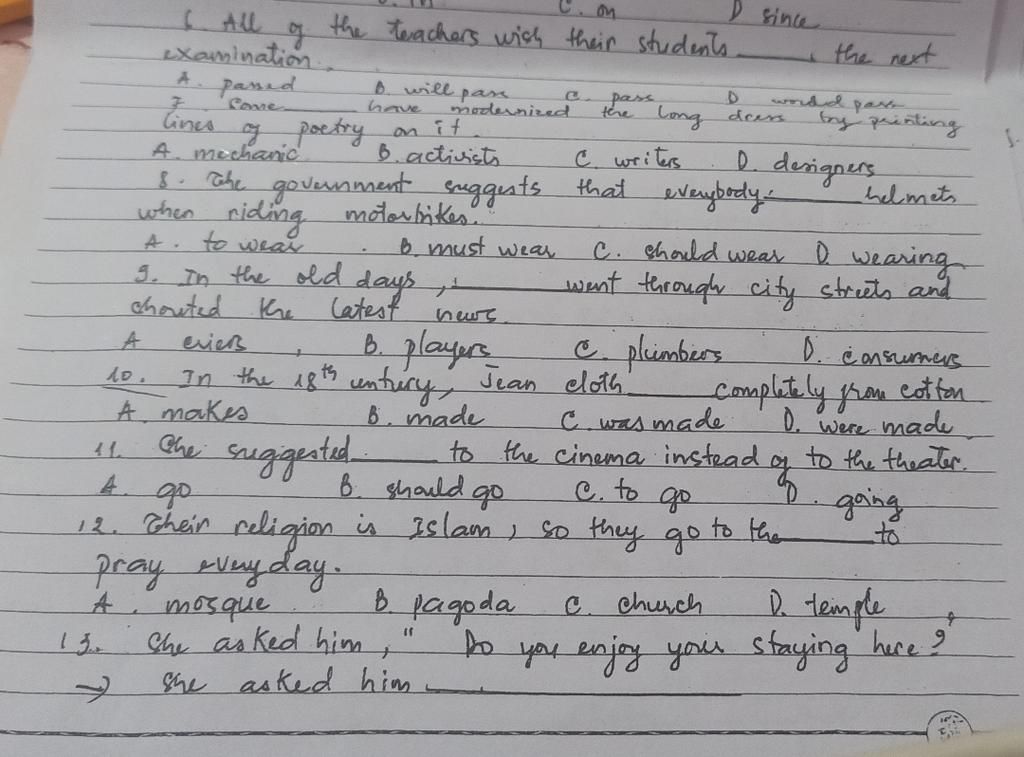 C. on D since
6. All of the teachers wish their students ______ the next
examination.
A. passed B. will pass C. pass D would pass
7. Some ______ have modernized the long dress by printing
lines of poetry on it.
A. mechanic B. activists C. writers D. designers
8. The government suggests that everybody ______ helmets
when riding motorbikes.
A. to wear B. must wear C. should wear D. wearing
9. In the old days, ______ went through city streets and
shouted the latest news
A criers B. players C. plumbers D. consumers
10. In the 18th century, Jean cloth ______ completely from cotton
A. makes B. made C. was made D. were made
11. She suggested ______ to the cinema instead of to the theater.
A. go B. should go C. to go D. going
12. Their religion is Islam, so they go to the ______ to
pray everyday.
A. mosque B. pagoda C. church D. temple
13. She asked him, " Do you enjoy your staying here?
→ She asked him ______